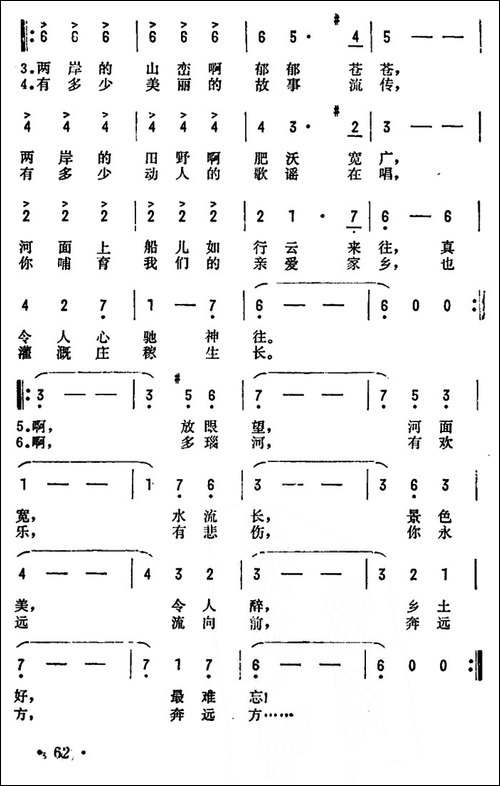 6 6 6 | 6 6 6 | 6 5 · #4 | 5 — — |
3.两岸的 山峦啊 郁郁 苍苍,
4.有多少 美丽的 故事 流传,
4 4 4 | 4 4 4 | 4 3 · #2 | 3 — — |
两岸的 田野啊 肥沃 宽广,
有多少 动人的 歌谣 在唱,
2 2 2 | 2 2 2 | 2 1 · 7 | 6 — 6 |
河面上 船儿如 行云 来往, 真
你哺育 我们的 亲爱 家乡, 也
4 2 7 | 1 — 7 | 6 — — | 6 0 0 :|
令人心 驰 神 往。
灌溉庄 稼 生 长。
|: 3 — — | 3 #5 6 | 7 — — | 7 5 3 |
5.啊, 放眼 望, 河面
6.啊, 多瑙 河, 有欢
1 — — | 1 7 6 | 3 — — | 3 6 3 |
宽, 水流 长, 景色
乐, 有悲 伤, 你永
4 — — | 4 3 2 | 3 — — | 3 2 1 |
美, 令人 醉, 乡土
远 流向 前, 奔远
7 — — | 7 1 7 | 6 — — | 6 0 0 :|
好, 最难 忘!
方, 奔远 方……
62